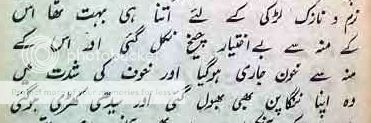 نرم و نازک لڑکی کے لئے اتنا ہی بہت تھا اس
کے منہ سے بے اختیار چیخ نکل گئی اور اس کے
منہ سے خون جاری ہوگیا اور خوف کی شدت میں
وہ اپنا ننگاپن بھی بھول گئی اور سیدھی کھڑی ہوگئی